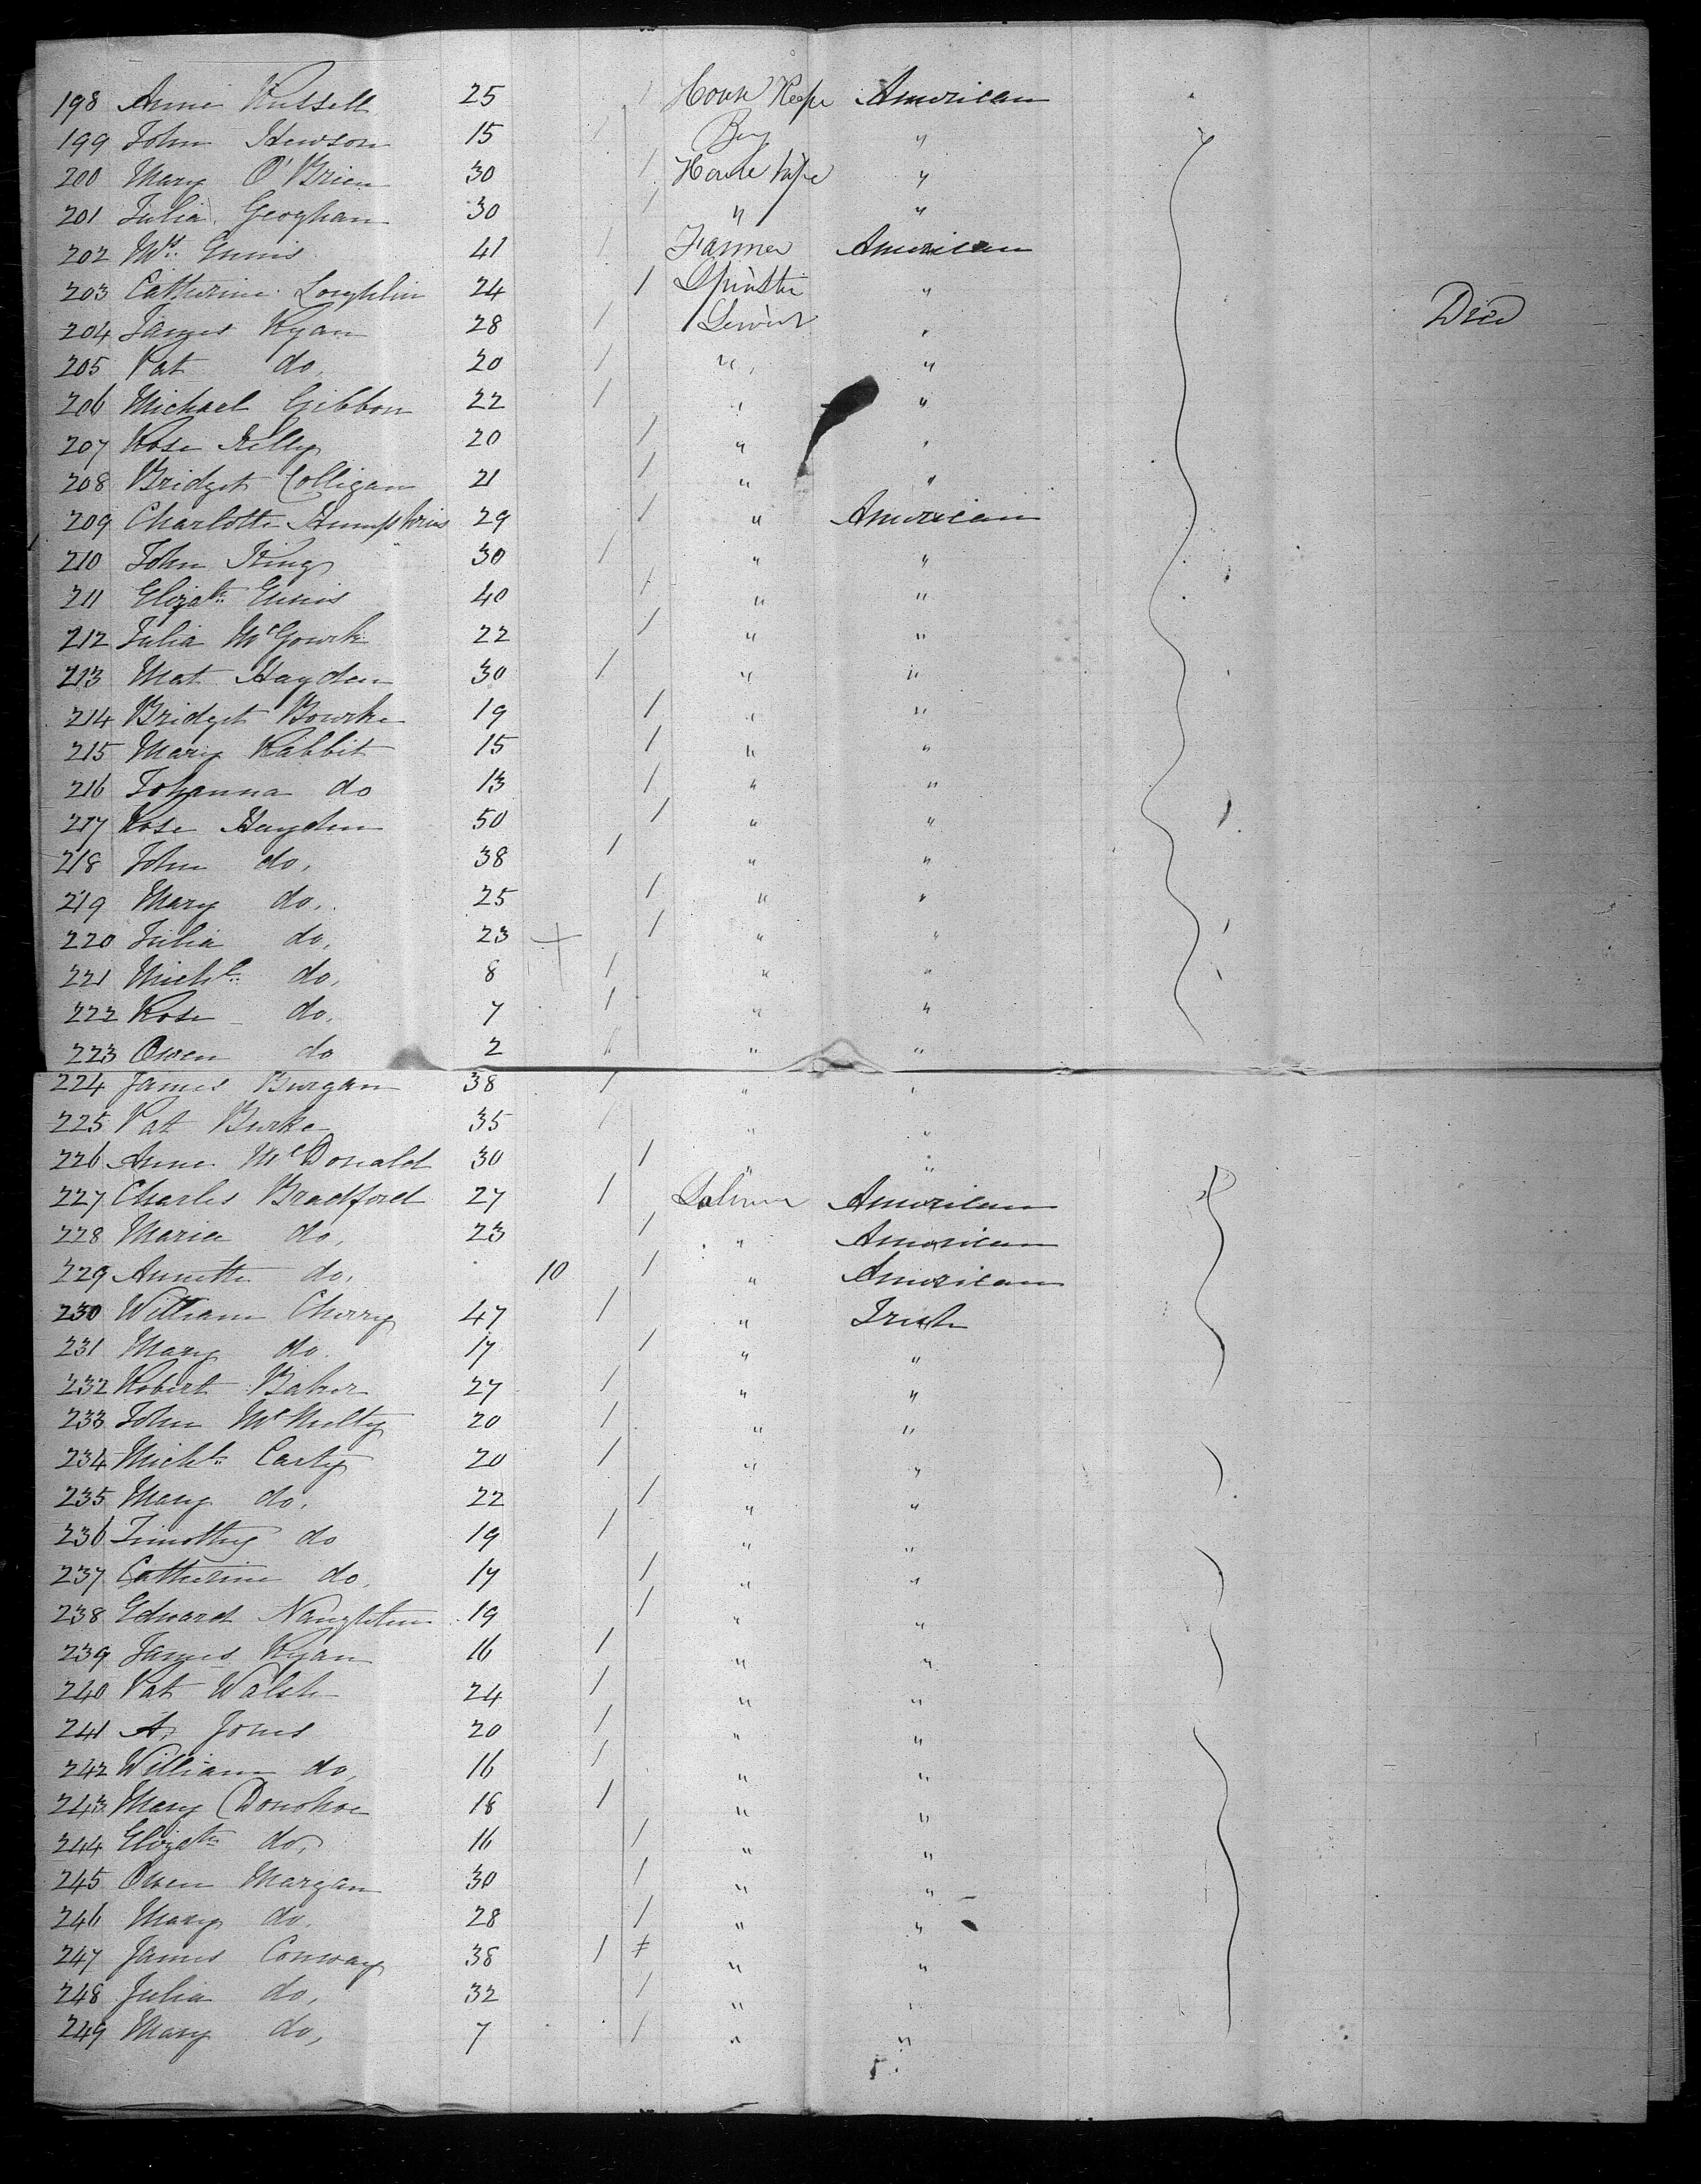 198 Annie Russell 25 1 House Keepr American
199 John Hewson 15 1 Boy "
200 Mary O'Brien 30 1 House Wife "
201 Julia Geoghan 30 1 " "
202 Ennis 41 1 Farmer American
203 Catherine Loughlin 24 1 Spinster "
204 James Ryan 28 1 " Died
205 Pat do 20 1 " "
206 Michael Gibbon 22 1 " "
207 Rose Kelly 20 1 " "
208 Bridget Colligan 21 1 " "
209 Charlotte Humphries 29 1 " American
210 John King 30 1 " "
211 Elizath Ennis 40 1 " "
212 Julia 22 1 " "
213 Mat Hayden 30 1 " "
214 Bridget Bourke 19 1 " "
215 Mary Rabbit 15 1 " "
216 Johanna do 13 1 " "
217 Rose Hayden 50 1 " "
218 John do, 38 1 " "
219 Mary do, 25 1 " "
220 Julia do, 23 + 1 " "
221 Michl do, 8 1 " "
222 Rose do, 7 1 " "
223 Owen do 2 " "
224 James Burgan 38 1 " "
225 Pat Burke 35 1 " "
226 Anne McDonald 30 1 " "
227 Charles Bradford 27 1 American
228 Maria do, 23 1 " American
229 Annette do, 10 1 " American
230 William Cherry 47 1 " Irish
231 Mary do 17 1 " "
232 Robert Baker 27 1 " "
233 John McNulty 20 1 " "
234 Michl Carty 20 1 " "
235 Mary do, 22 1 " "
236 Timothy do 19 1 " "
237 Catherine do, 17 1 " "
238 Edward Naughton 19 1 " "
239 James Ryan 16 1 " "
240 Pat Walsh 24 1 " "
241 A, Jones 20 1 " "
242 William do, 16 1 " "
243 Mary Donohoe 18 1 " "
244 Elizath do, 16 1 " "
245 Owen Margan 30 1 " "
246 Mary do, 28 1 " "
247 James Conway 38 1 " "
248 Julia do, 32 1 " "
249 Mary do, 7 1 " "